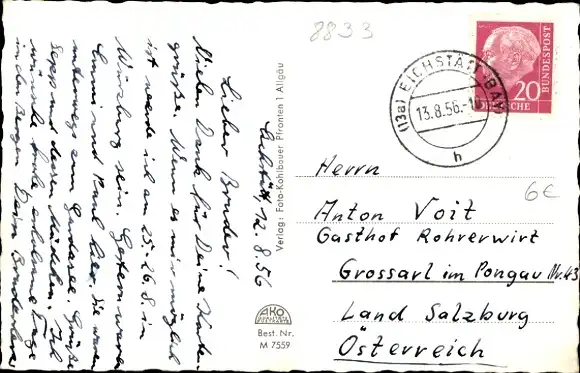 8833
Eichstätt, 12.8.56
Lieber Bruder!
Vielen Dank für Deine Karten-
grüße. Wenn es mir möglich
ist werde ich am 25.-26.8. in
Würzburg sein. Gestern waren
Emmi und Paul hier. Sie waren
unterwegs zum Gardasee. Grüße
Sepp und dessen Mädchen. Ich
wünsche frohe, erholsame Tage
in den Bergen Dein Bruderherz
Verlag: Foto-Kohlbauer Pfronten / Allgäu
AKO
Best. Nr.
M 7559
(13a) EICHSTÄTT (BAY
13.8.56.-1
h
DEUTSCHE
BUNDESPOST
20
6€
Herrn
Anton Voit
Gasthof Rohrerwirt
Grossarl im Pongau Nr.43
Land Salzburg
Österreich